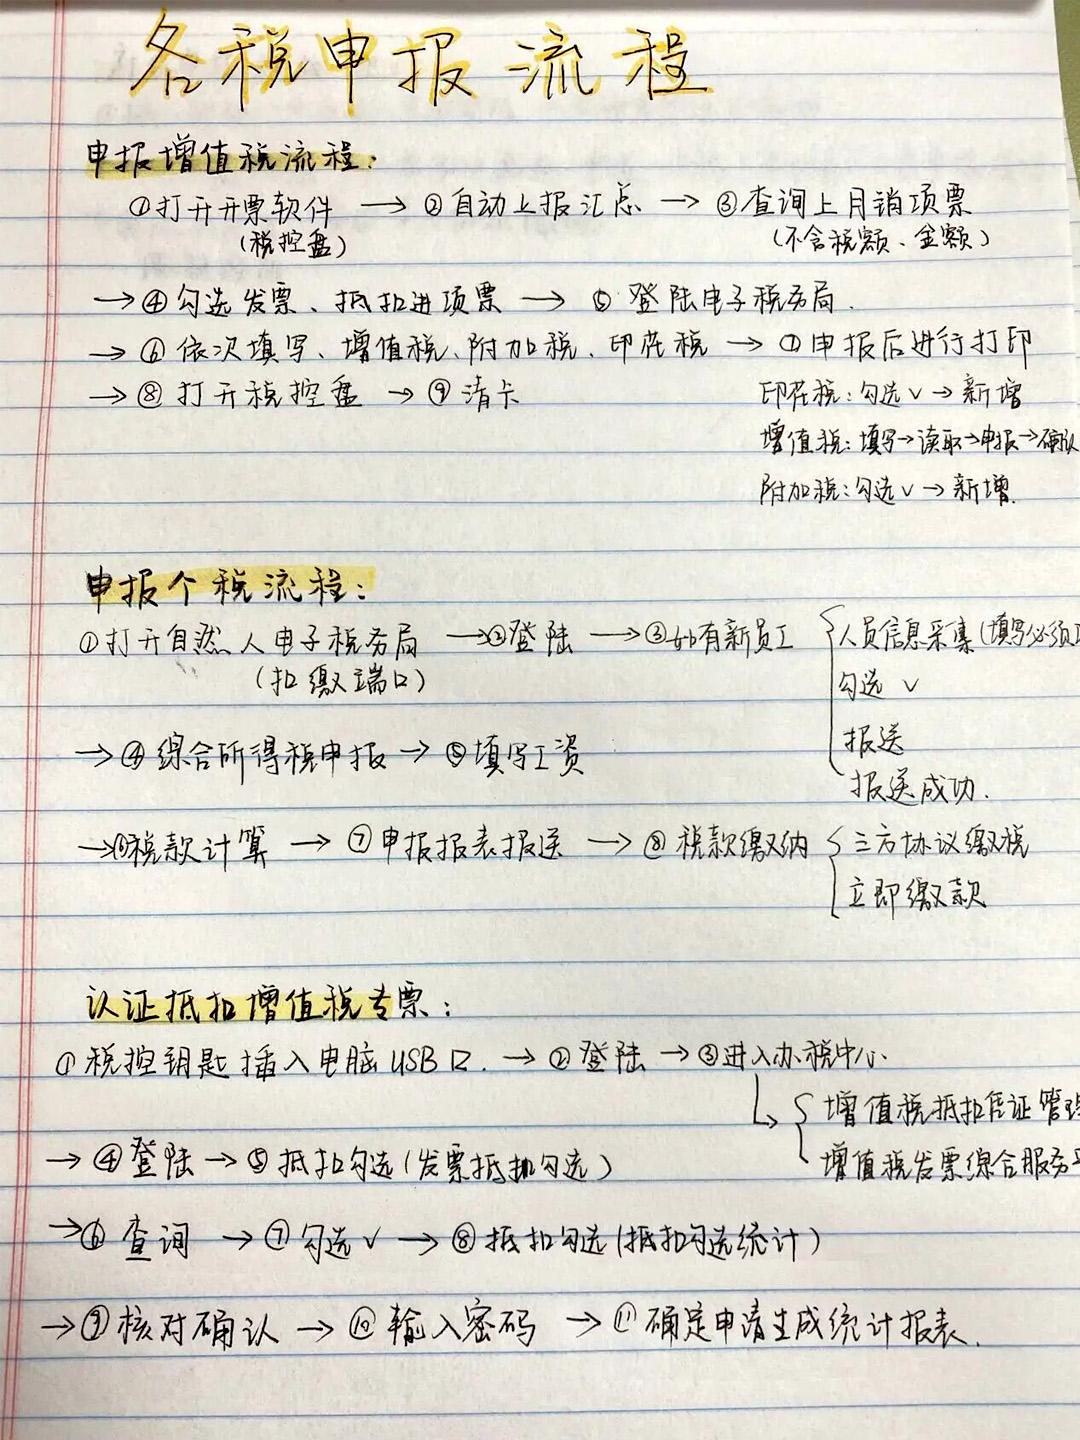 各税申报流程
申报增值税流程：
①打开开票软件 → ②自动上报汇总 → ③查询上月销项票
（税控盘） （不含税额、金额）
→ ④勾选发票、抵扣进项票 → ⑤登陆电子税务局.
→ ⑥依次填写、增值税、附加税、印花税 → ⑦申报后进行打印
→ ⑧打开税控盘 → ⑨清卡 印花税：勾选√ → 新增
增值税：填写→读取→申报→确认
附加税：勾选√ → 新增.
申报个税流程：
①打开自然人电子税务局 → ②登陆 → ③如有新员工 人员信息采集（填写必须
（扣缴端口） 勾选 √
→ ④综合所得税申报 → ⑤填写工资 报送
报送成功.
→ ⑥税款计算 → ⑦申报报表报送 → ⑧税款缴纳 三方协议缴税
立即缴款
认证抵扣增值税专票：
①税控钥匙插入电脑USB口. → ②登陆 → ③进入办税中心.
增值税抵扣凭证管理
→ ④登陆 → ⑤抵扣勾选（发票抵扣勾选） 增值税发票综合服务
→ ⑥查询 → ⑦勾选√ → ⑧抵扣勾选（抵扣勾选统计）
→ ⑨核对确认 → ⑩输入密码 → ⑪确定申请生成统计报表.